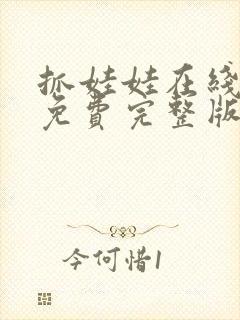 抓娃娃在线
免费完整版
今何惜1